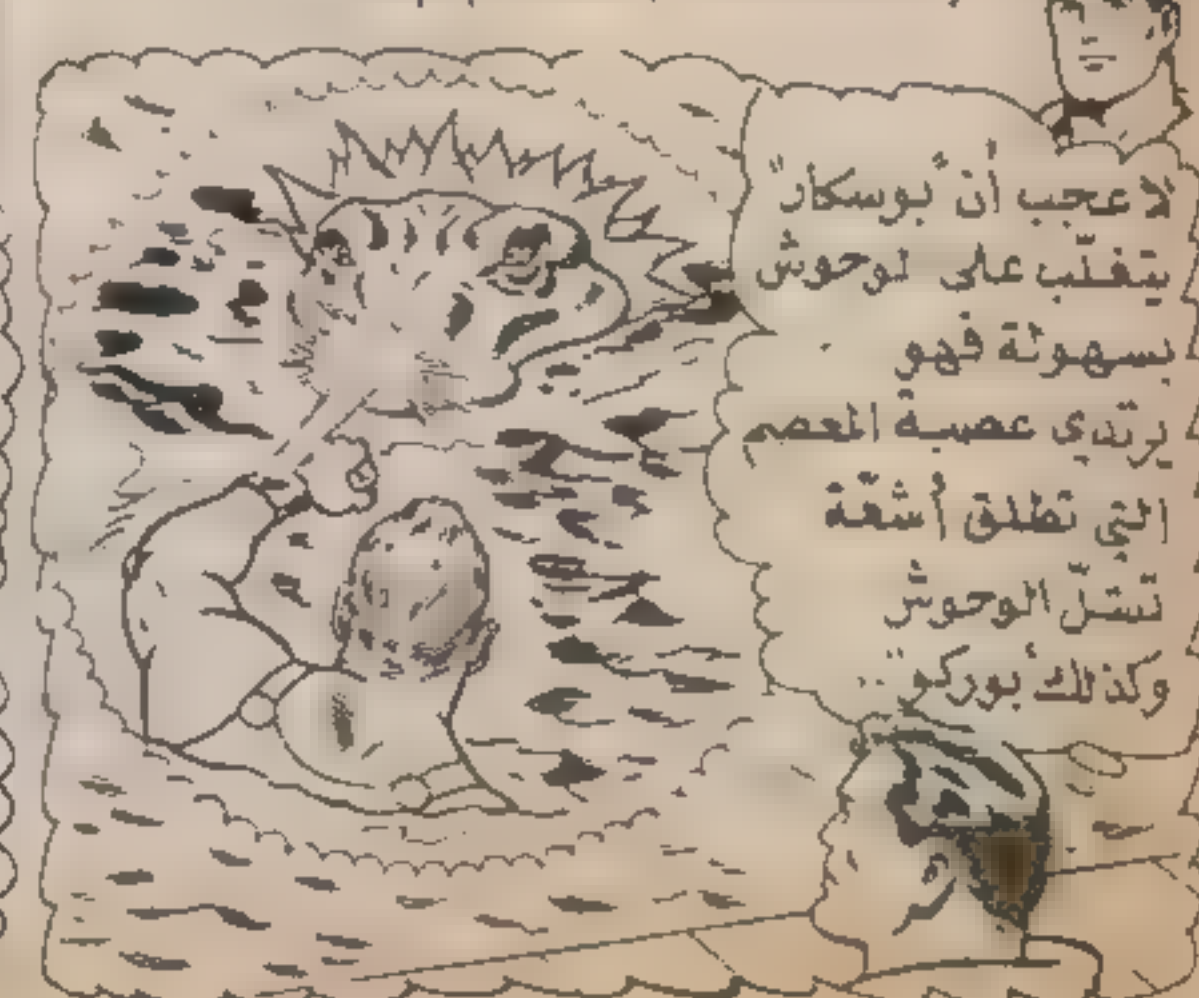 لا عجب أن "بوسكار"
يتغلّب على لوحوش
بسهولة فهو
يرتدي عصبة المعصم
التي تطلق أشعّة
تشلّ الوحوش
وكذلك بوركو"..